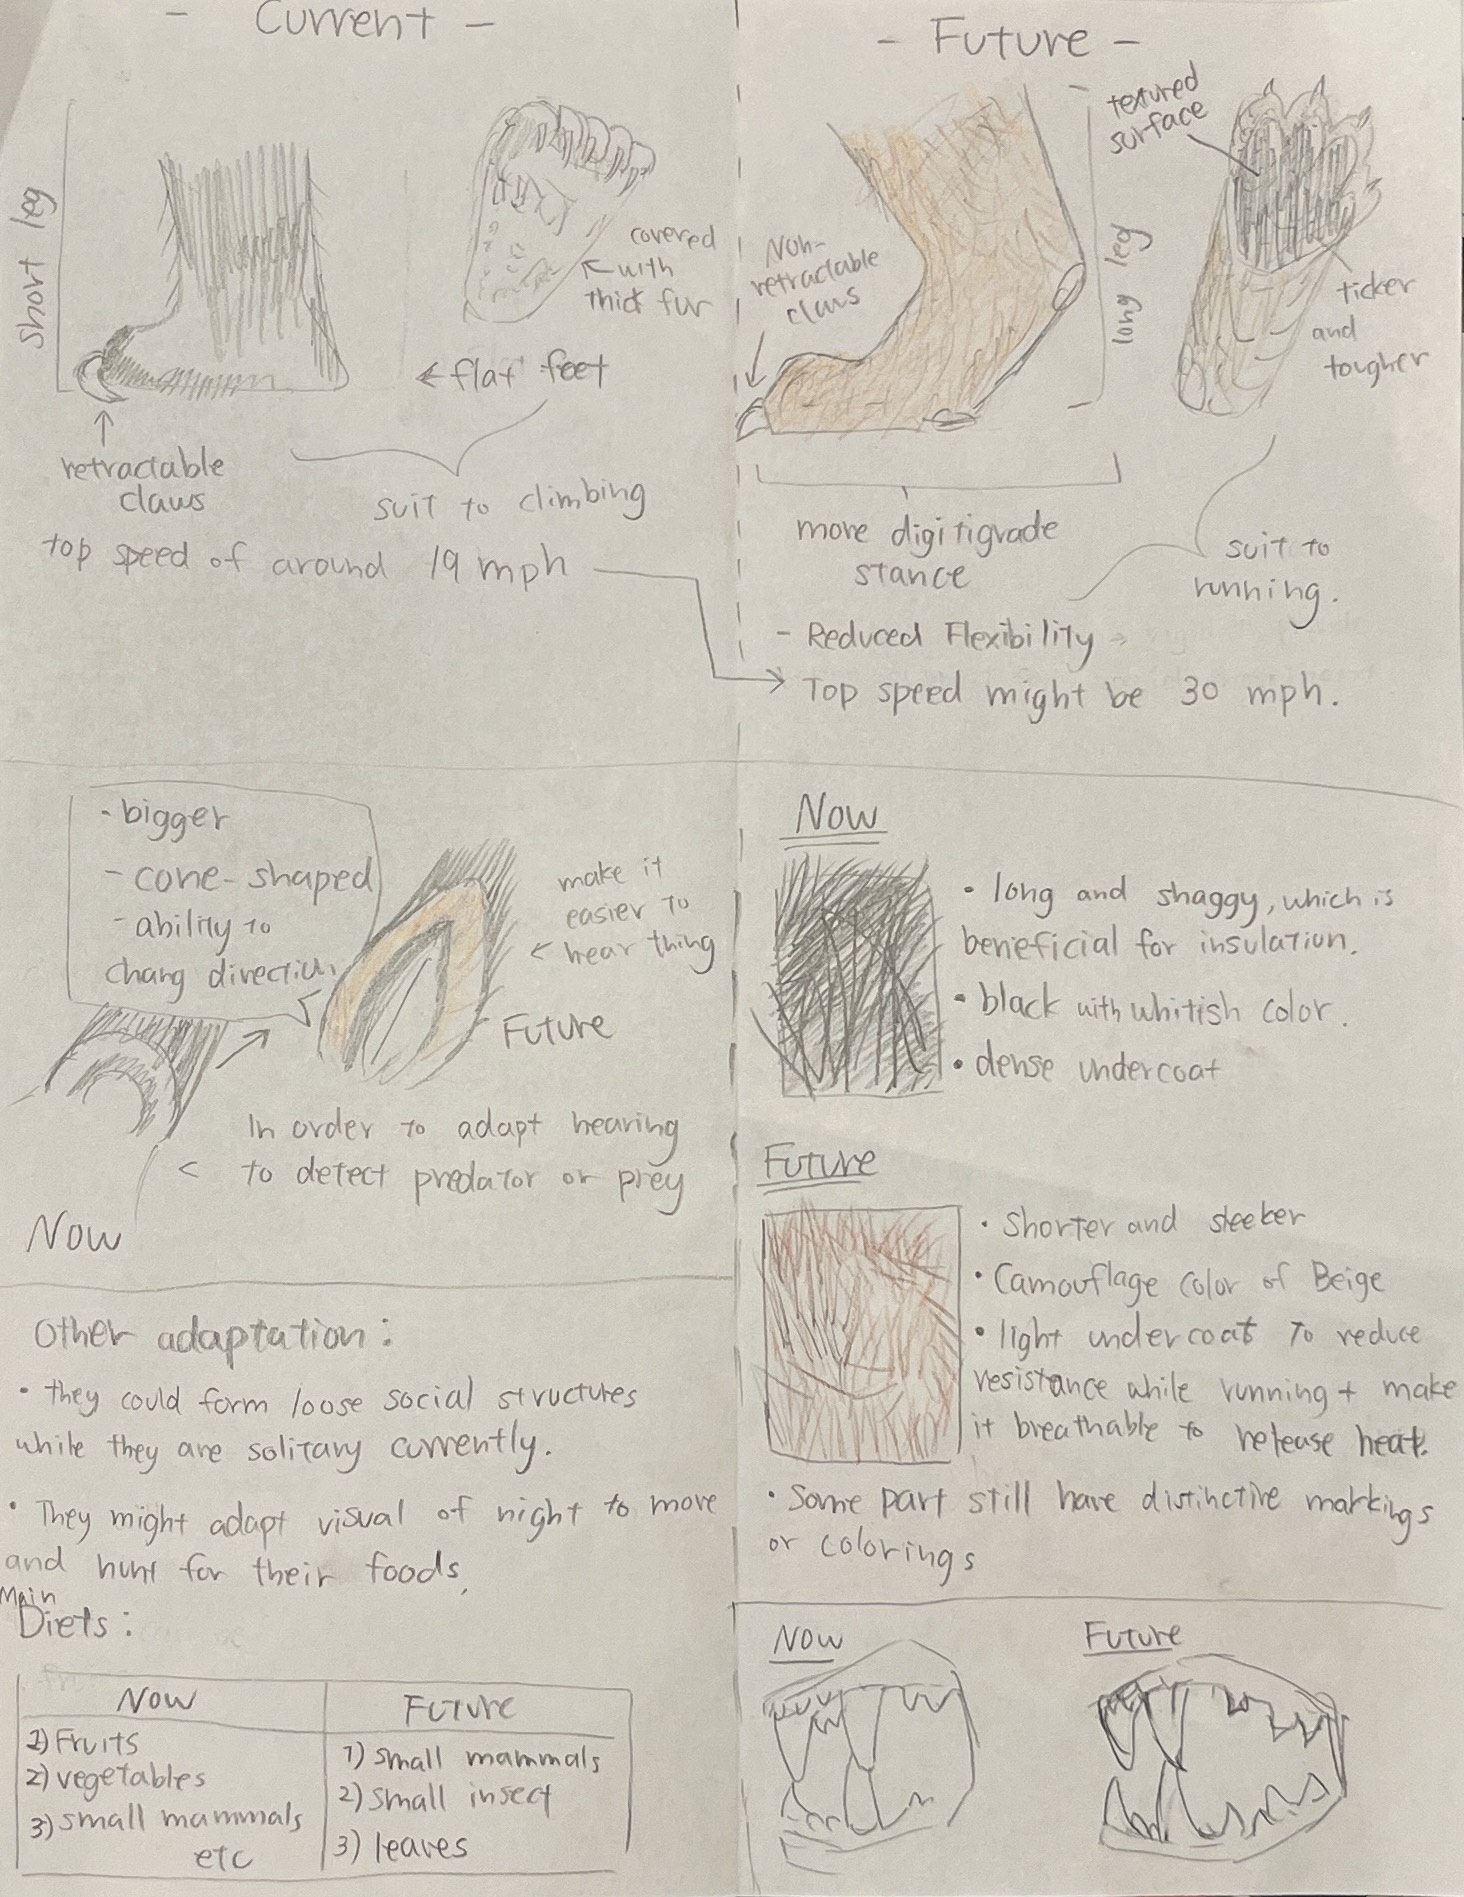 - Current -
short leg
covered
with
thick fur
flat feet
retractable
claws
suit to climbing
top speed of around 19 mph
- Future -
textured
surface
Non-
retractable
claws
long leg
ticker
and
tougher
more digitigrade
stance
suit to
running.
- Reduced Flexibility
Top speed might be 30 mph.
- bigger
- cone-shaped
- ability to
chang direction
make it
easier to
hear thing
Future
In order to adapt hearing
to detect predator or prey
Now
Now
• long and shaggy, which is
beneficial for insulation.
• black with whitish color.
• dense undercoat
Future
• Shorter and sleeker
• Camouflage color of Beige
• light undercoat to reduce
resistance while running + make
it breathable to release heat.
• Some part still have distinctive markings
or colorings
Other adaptation:
• they could form loose social structures
while they are solitary currently.
• They might adapt visual of night to more
and hunt for their foods.
Main
Diets:
Now
1) Fruits
2) vegetables
3) small mammals
etc
Future
1) small mammals
2) small insect
3) leaves
Now
Future